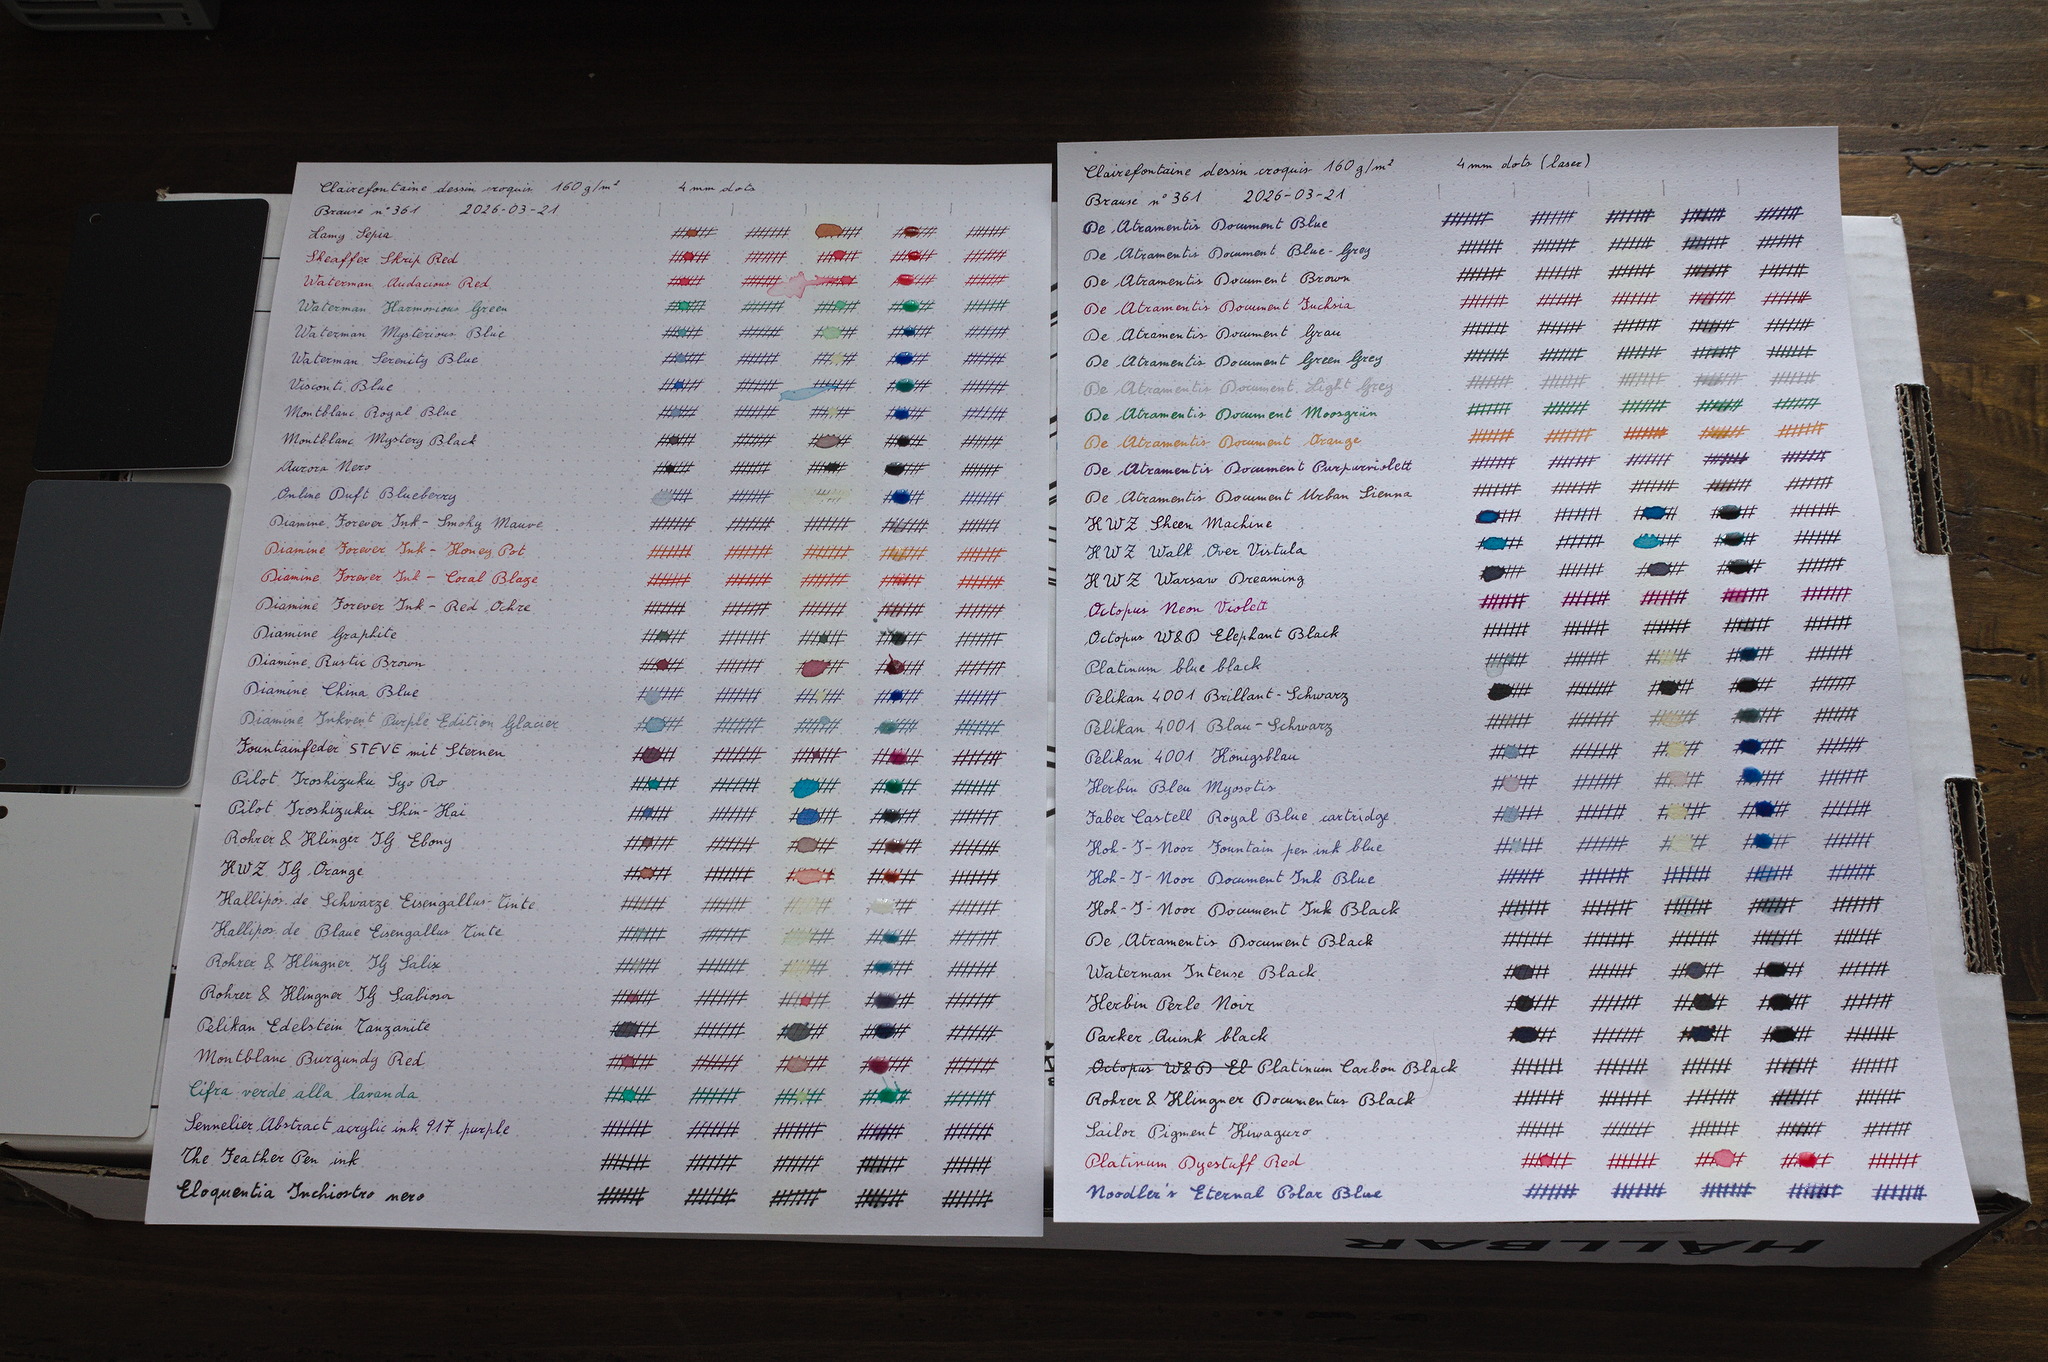 Clairefontaine dessin croquis 160 g/m² 4 mm dots
Brause n° 361 2026-03-21
Lamy Sepia
Sheaffer Skrip Red
Waterman Audacious Red
Waterman Harmonious Green
Waterman Mysterious Blue
Waterman Serenity Blue
Visconti Blue
Montblanc Royal Blue
Montblanc Mystery Black
Aurora Nero
Online Duft Blueberry
Diamine Forever Ink - Smoky Mauve
Diamine Forever Ink - Honey Pot
Diamine Forever Ink - Coral Blaze
Diamine Forever Ink - Red Ochre
Diamine Graphite
Diamine Rustic Brown
Diamine China Blue
Diamine Inkvent Purple Edition Glacier
Fountainfeder STEVE mit Sternen
Pilot Iroshizuku Syo Ro
Pilot Iroshizuku Shin-Kai
Rohrer & Klinger IG Ebony
KWZ IG Orange
Kallipos.de Schwarze Eisengallus-Tinte
Kallipos.de Blaue Eisengallus Tinte
Rohrer & Klingner IG Salix
Rohrer & Klingner IG Scabiosa
Pelikan Edelstein Tanzanite
Montblanc Burgundy Red
Cifra verde alla lavanda
Sennelier Abstract acrylic ink 917 purple
The Feather Pen ink
Eloquentia Inchiostro nero
Clairefontaine dessin croquis 160 g/m² 4 mm dots (laser)
Brause n° 361 2026-03-21
De Atramentis Document Blue
De Atramentis Document Blue-Grey
De Atramentis Document Brown
De Atramentis Document Fuchsia
De Atramentis Document Grau
De Atramentis Document Green Grey
De Atramentis Document Light Grey
De Atramentis Document Moosgrün
De Atramentis Document Orange
De Atramentis Document Purpurviolett
De Atramentis Document Urban Sienna
KWZ Sheen Machine
KWZ Walk Over Vistula
KWZ Warsaw Dreaming
Octopus Neon Violett
Octopus W&D Elephant Black
Platinum blue black
Pelikan 4001 Brillant-Schwarz
Pelikan 4001 Blau-Schwarz
Pelikan 4001 Königsblau
Herbin Bleu Myosotis
Faber Castell Royal Blue cartridge
Koh-I-Noor Fountain pen ink blue
Koh-I-Noor Document Ink Blue
Koh-I-Noor Document Ink Black
De Atramentis Document Black
Waterman Intense Black
Herbin Perle Noir
Parker Quink black
Octopus W&D El Platinum Carbon Black
Rohrer & Klingner Documentus Black
Sailor Pigment Kiwaguro
Platinum Dyestuff Red
Noodler's Eternal Polar Blue
HÅLLBAR